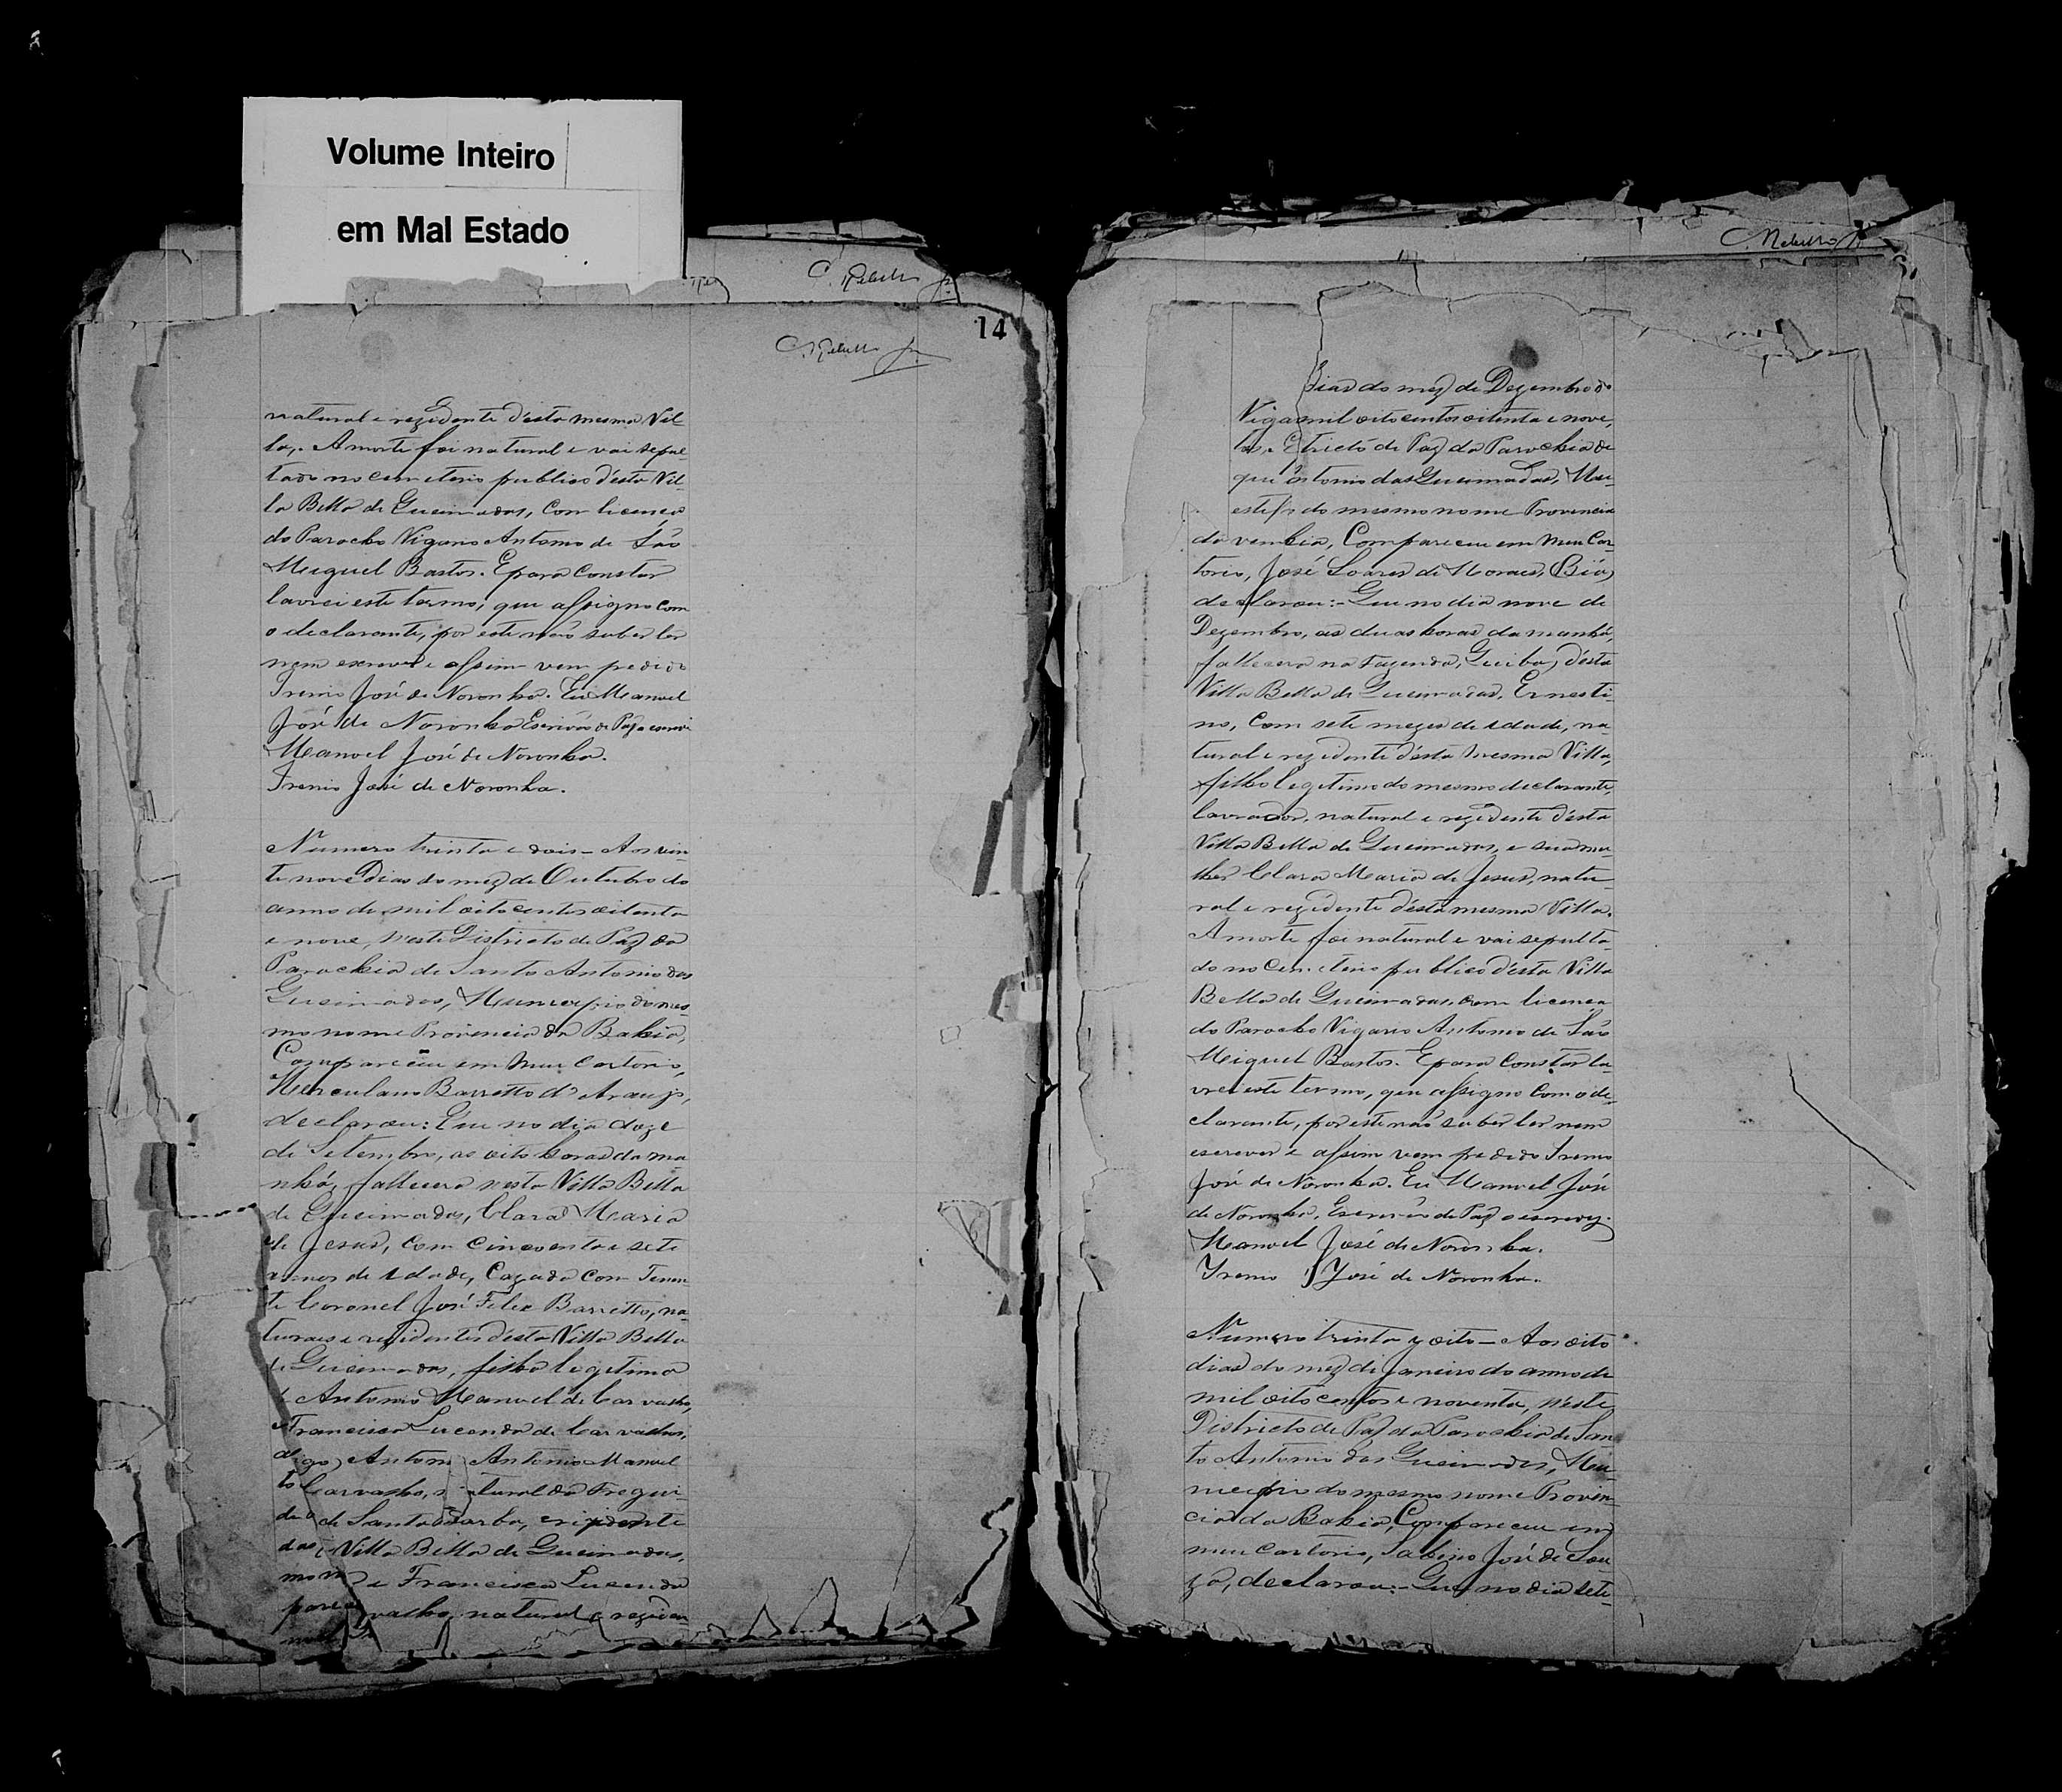 Volume Inteiro
em Mal Estado
14
natural e rezidente d'esta mesma Vil-
la. A morte foi natural e vai sepul-
tado no cemeterio publico d'esta Vil-
la Bella de Queimadas, com licença
do Parocho Vigario Antonio de São
Miguel Bastos. E para constar
lavrei este termo, que assigno com
o declarante, por este não saber ler
nem escrever e assim vem pedido
Irenio José de Noronha. Eu Manoel
José de Noronha Escrivão de Paz o escrevi
Manoel José de Noronha.
Irenio José de Noronha.
Numero trinta e dois - Aos vin-
te nove Dias do mez de Outubro do
anno de mil oito centos oitenta
e nove, n'este Districto de Paz da
Parochia de Santo Antonio das
Queimadas, Municipio do mes-
mo nome Provincia da Bahia,
Compareceu em meu Cartorio,
Herculano Barretto d'Araujo,
declarou: Que no dia doze
de Setembro, as oito horas da ma
nhã, fallecera nesta Villa Bella
de Queimadas, Clara Maria
de Jesus, com cincoenta e sete
annos de idade, Cazada com Tenen
te Coronel José Felix Barretto, na
turaes e rezidentes d'esta Villa Bella
de Queimadas, filha legitima
de Antonio Manoel de Carvalho,
e Francisca Lucenda de Carvalho,
digo, Antoni Antonio Manoel
Carvalho, natural da Fregui-
de Santa Barba, e rezidente
Villa Bella de Queimadas,
e Francisca Lucenda
valho, natural e reziden
C. Rebello Jr
dias do mez de Dezembro do
Viga mil oito centos oitenta e nove,
tricto de Paz da Parochia de
tonio das Queimadas, Mu-
este do mesmo nome Provincia
Compareceu em meu Car-
torio, José Soares de Moraes,
declarou:- Que no dia nove de
Dezembro, as duas horas da manhã,
fallecera na Fazenda, d'esta
Villa Bella de Queimadas, Ernesti-
no, com sete mezes de idade, na-
tural e rezidente d'esta mesma Villa,
filho legitimo do mesmo declarante,
lavrador, natural e rezidente d'esta
Villa Bella de Queimadas, e sua mu-
lher Clara Maria de Jesus, natu-
ral e rezidente d'esta mesma Villa.
A morte foi natural e vai sepulta-
do no cemeterio publico d'esta Villa
Bella de Queimadas, com licença
do Parocho Vigario Antonio de São
Miguel Bastos. E para constar la-
vrei este termo, que assigno com o de-
clarante, por este não saber ler nem
escrever e assim vem pedido Irenio
José de Noronha. Eu Manoel José
de Noronha, Escrivão de Paz o escrevy.
Manoel José de Noronha.
Irenio José de Noronha.
Numero trinta y oito - Aos oito
dias do mez de Janeiro do anno de
mil oito centos e noventa, n'este
Districto de Paz da Parochia de San-
to Antonio das Queimadas, Mu-
nicipio do mesmo nome Provin-
cia da Bahia, Compareceu em
meu Cartorio, Sabino José de Sou-
za, declarou:- Que no dia sete